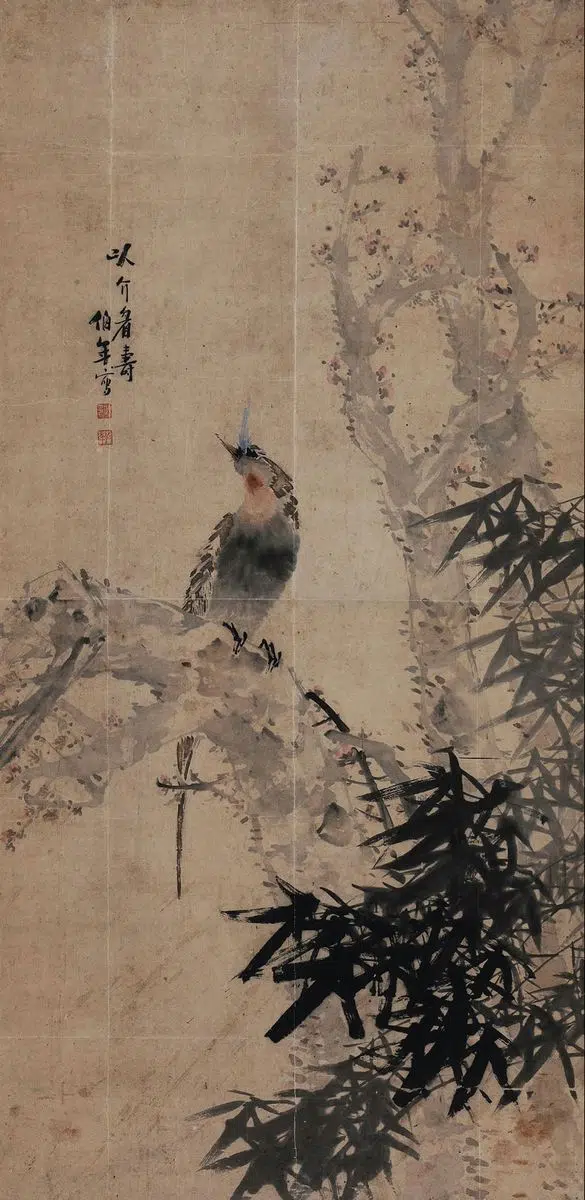 以介眉壽
伯年寫